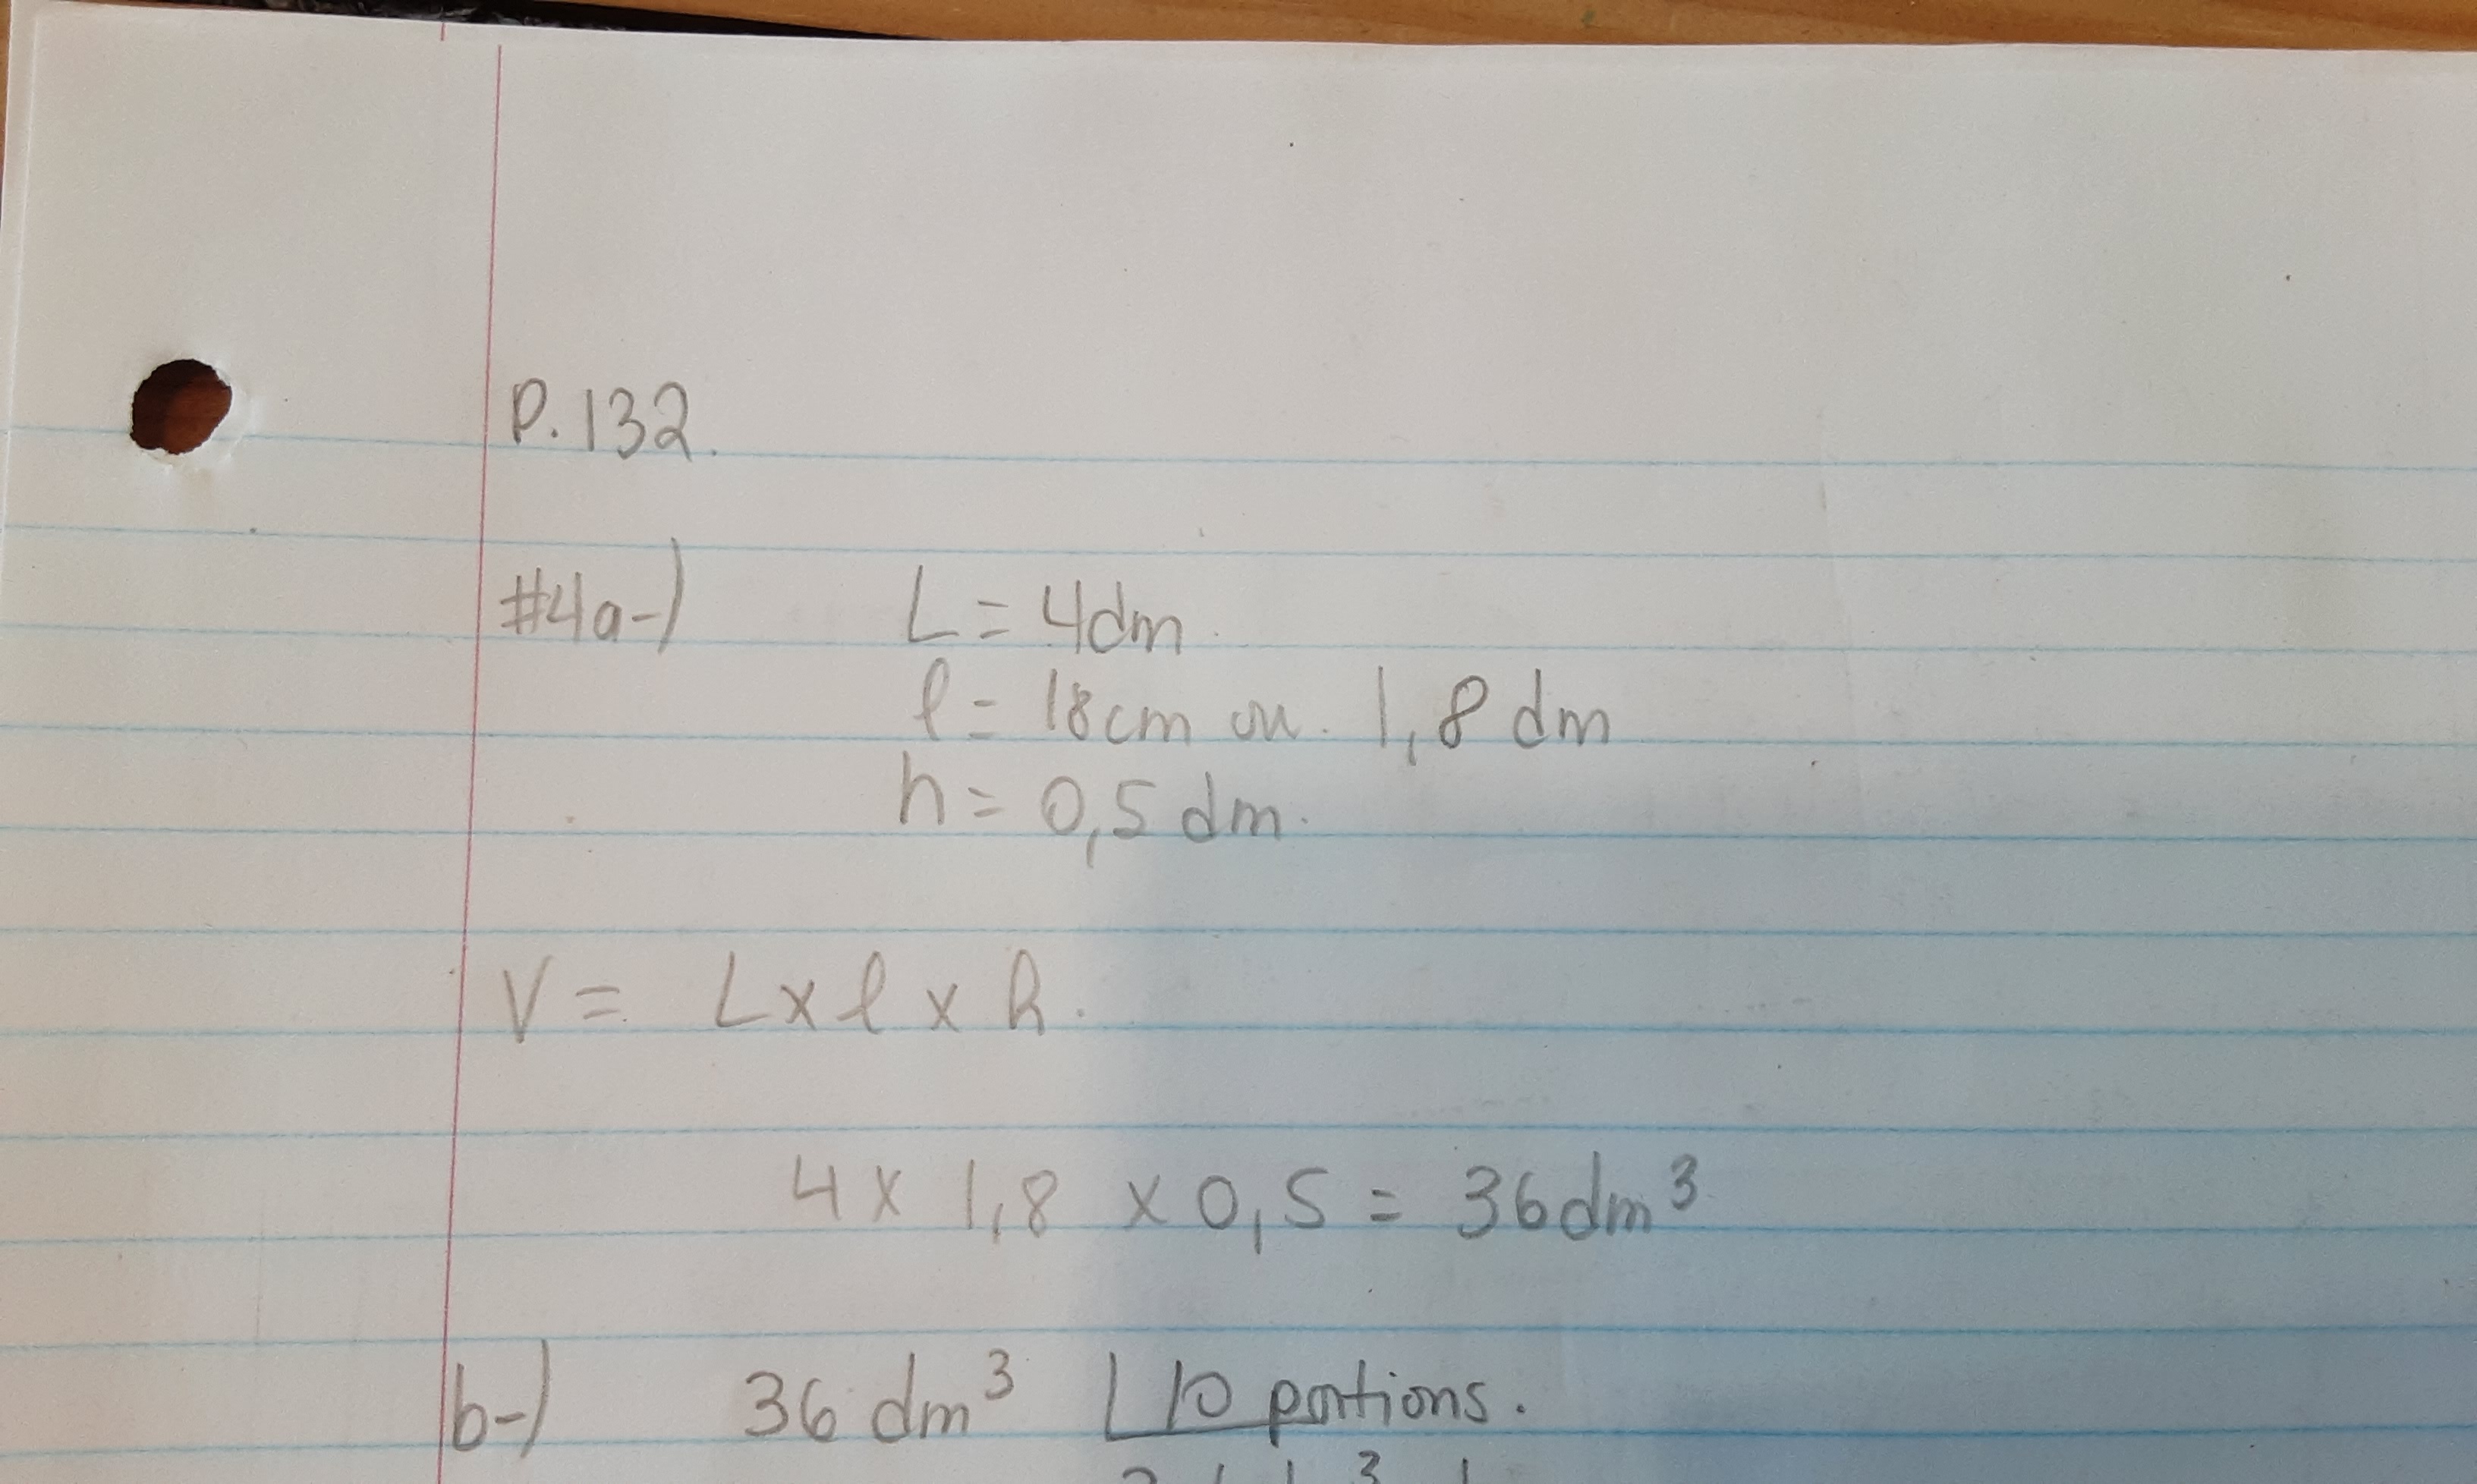 P. 132.
#4a-) L = 4dm.
l = 18cm ou. 1,8 dm
h = 0,5 dm.
V = L x l x h.
4 x 1,8 x 0,5 = 36dm³
b-) 36 dm³ 10 portions.